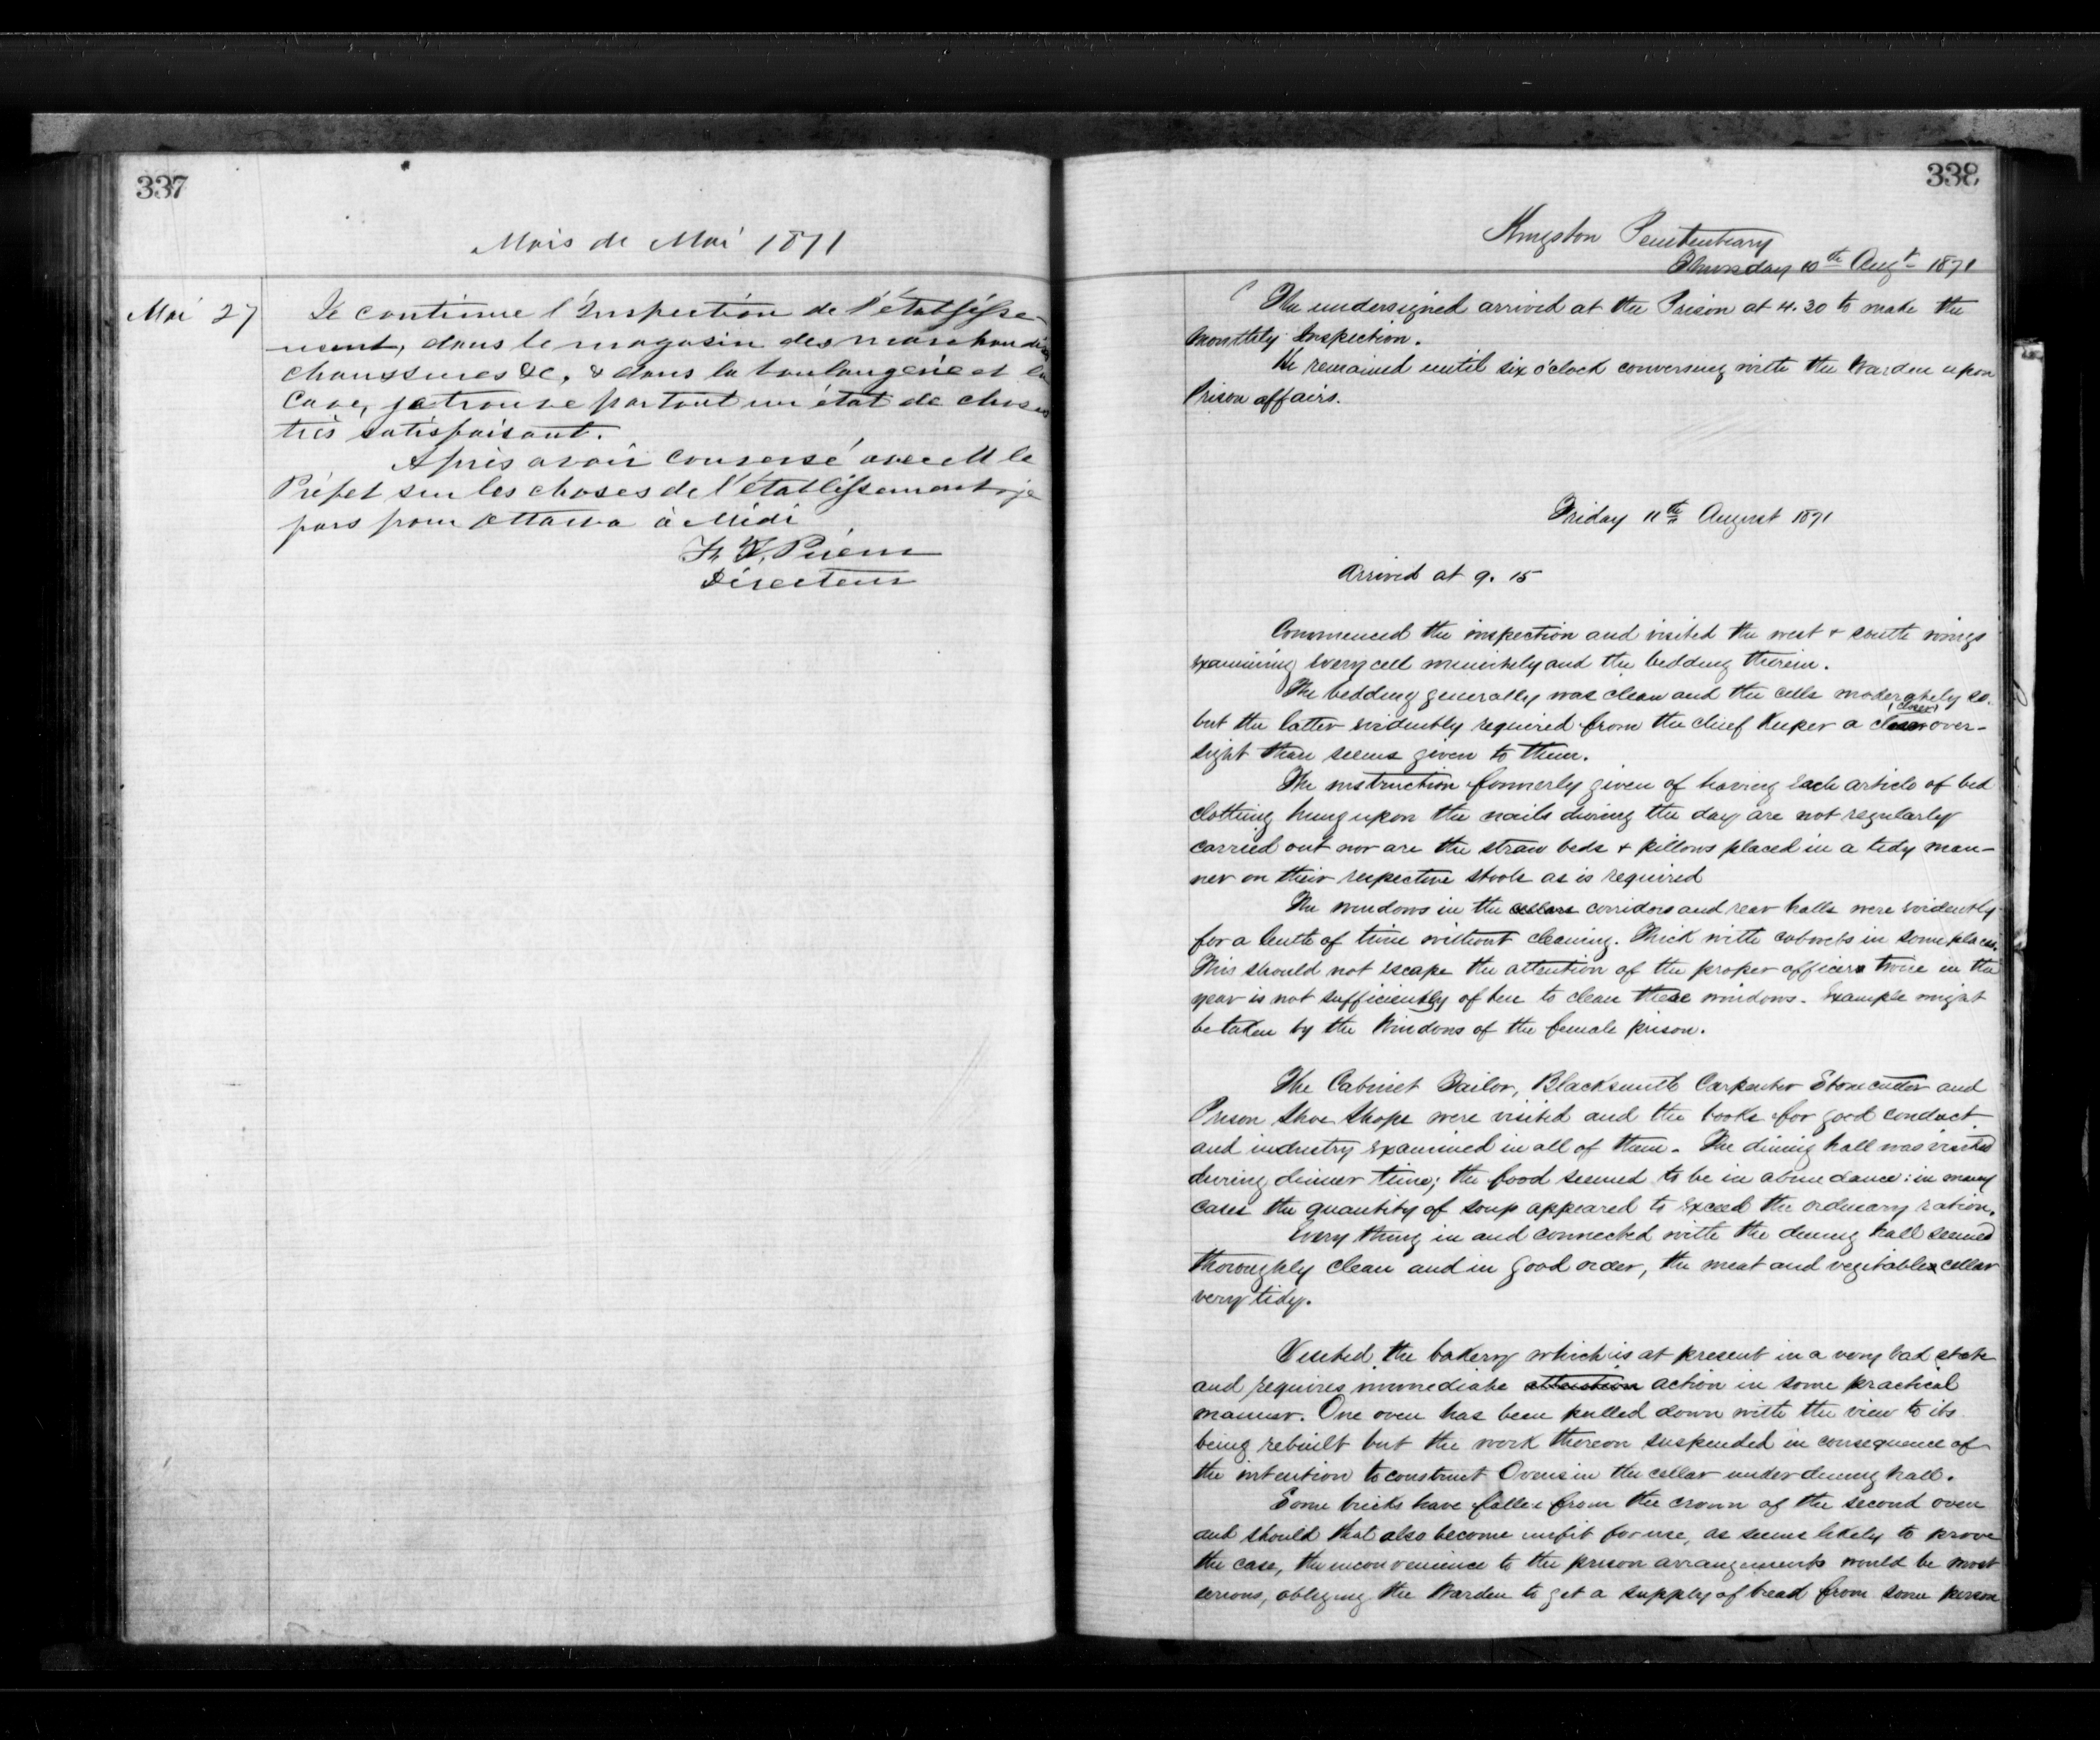 337
Mois de Mai 1871
Mai 27
Je continue l'Inspection de l'établisse-
-ment, dans le magasin des marchandises
chaussures &c, & dans la boulangerie et la
Cave, je trouve partout un état de choses
très satisfaisant.
Après avoir conversé avec M le
Préfet sur les choses de l'établissement, je
pars pour Ottawa à Midi
Directeur
338
Kingston Penitentiary
Thursday 10th Augt 1871
The undersigned arrived at the Prison at 4.30 to make the
Monthly Inspection.
He remained until six o'clock conversing with the Warden upon
Prison affairs.
Friday 11th August 1871
Arrived at 9.15
Commenced the inspection and visited the west & south wings
examining every cell minutely and the bedding therein.
The bedding generally was clean and the cells moderately so.
but the latter evidently required from the chief Keeper a closer over-
sight than seems given to them.
The instruction formerly given of having each article of bed
clothing hung upon the nails during the day are not regularly
carried out nor are the straw beds & pillows placed in a tidy man-
ner on their respective stools as is required
The windows in the cellars corridors and rear halls were evidently
for a lenth of time without cleaning. Thick with cobwebs in some places.
This should not escape the attention of the proper officers twice in the
year is not sufficiently often to clean these windows. Example might
be taken by the Windows of the female prison.
The Cabinet Tailor, Blacksmith Carpenter Stonecutter and
Prison Shoe Shops were visited and the books for good conduct
and industry examined in all of them. The dining hall was visited
during dinner time; the food seemed to be in abundance: in many
cases the quantity of soup appeared to exceed the ordinary ration.
Every thing in and connected with the dining hall seemed
thoroughly clean and in good order, the meat and vegitable cellar
very tidy.
Visited the bakery which is at present in a very bad state
and requires immediate attention action in some practical
manner. One oven has been pulled down with the view to its
being rebuilt but the work thereon suspended in consequence of
the intention to construct Ovens in the cellar under dining hall.
Some bricks have fallen from the crown of the second oven
and should that also become unfit for use, as seems likely to prove
the case, the inconvenience to the prison arrangements would be most
serious, obliging the Warden to get a supply of bread from some person